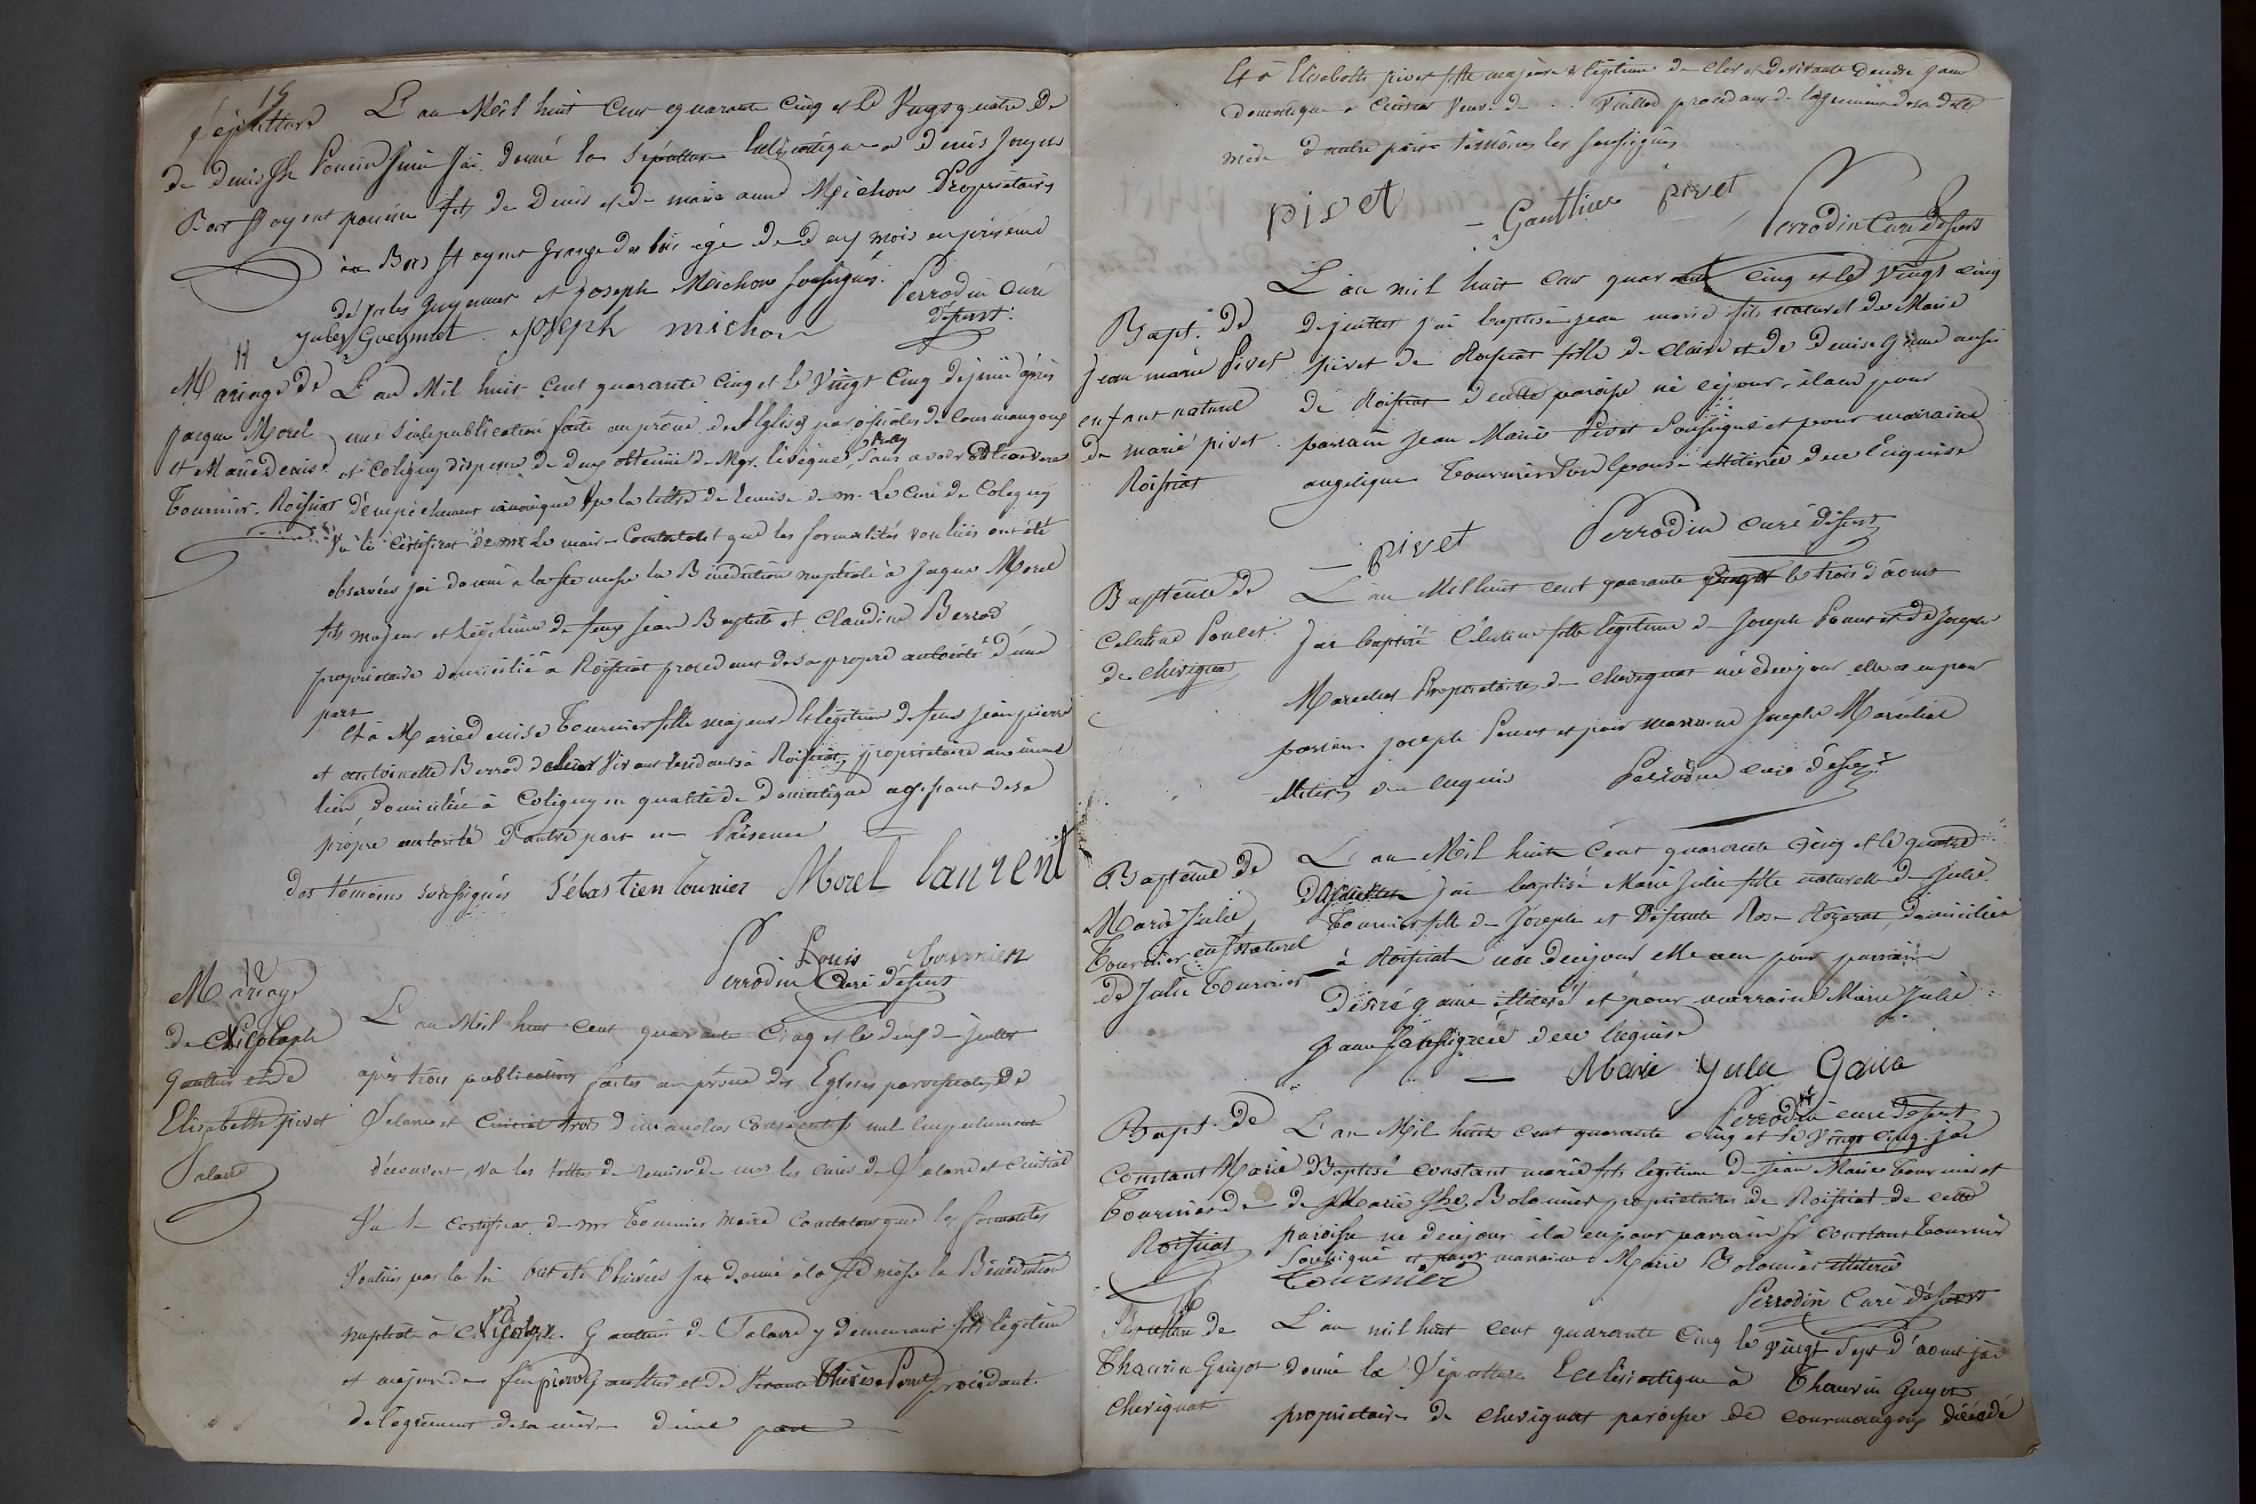 15
Sépulture
de Denis Jh Poncin
L'an Mil huit Cent quarante Cinq et le Vingt quatre De
Juin J'ai Donné la Sépulture Ecclésiastique à Denis Joseph
Poncin fils de Denis et de marie anne Michon Propriétaires
âgé De Deux mois en présence
de Jules Guyennet et Joseph Michon soussignés. Perrodin Curé
Jules Gueymet Joseph michon desserv.
11
Mariage de
Jacque Morel
et Marie Denise
Tournier. Roissiat
L'an Mil huit Cent quarante Cinq et le Vingt Cinq de juin après
une seule publication faite au prône des Eglises paroissiales de Courmangoux
et Coligny dispense de deux obtenue de Mgr. l'évêque, sans avoir découvert
d'empêchement canonique Vu la lettre de remise de m. Le Curé de Coligny
Vu le Certificat de mr Le maire Constatant que les formalités voulues ont été
observées jai donné a la Ste messe la Bénédiction nuptiale à Jaque Morel
fils majeur et légitime de feux Jean Baptiste et Claudine Berrod
propriétaire domicilié à Roissiat procedant de sa propre autorité d'une
part
Et à Marie Denise Tournier fille majeure et légitime de feus Jean pierre
et antoinette Berrod de leur Vivant residants à Roissiat, propriétaire au même
lieu domiciliée à Coligny en qualité de Domestique agissant de sa
propre autorité d'autre part en Présence
des témoins soussignés Sébastien tournier Morel laurent
Louis tournier
Perrodin Curé desserv
12
Mariage
de
Gauthier et de
Elisabeth pivet
Salavre
L'an Mil huit Cent quarante Cinq et le deux de juillet
après trois publications faites au prône des Eglises paroissiales De
Salavre et Cuisiat trois dimanches consécutifs nul empêchement
découvert, vu les lettres de remise de mrs les curés de Salavre et Cuisiat
Vu le certificat de mr Tournier Maire Constatant que les formalités
Voulues par la loi Ont été Observées J'ai donné à la Ste messe la Bénédiction
nuptiale à Gauthier de Salavre y demeurant fils légitime
et majeur de feu pierre Gauthier et de Thérèse procédant
de l'agrément de sa mère d'une part
Et à Elisabeth pivet fille majeure et légitime de et de Denise Gauin
Domestique à Cuisiat procedant de l'agrément de sa dite
mère d'autre part témoins les soussignés
pivet Gauthier pivet Perrodin Curé desserv
Bapt. de
Jean marie Pivet
enfant naturel
de marie pivet
Roissiat
L'an mil huit cent quarante cinq et le vingt cinq
de juillet j'ai baptisé jean marie fils naturel de Marie
pivet de Roissiat fille de Claude et de Denise aussi
de Roissiat de cette paroisse né ce jour, il a eu pour
parrain Jean Marie Pivet soussigné et pour marraine
angelique Tournier son épouse illitérée de ce enquise
pivet Perrodin curé desserv
Baptême de
Celestine Poncet.
de Chevignat
L'an Mil huit cent quarante cinq et le trois d'août
J'ai baptisé Célestine fille légitime de Joseph Poncet et de Josephe
Marechal Propriétaires de Chevignat née de ce jour elle a eu pour
parrain joseph Poncet et pour marraine Josephe Maréchal
illitérés de ce enquis Perrodin curé desserv.
Baptême de
Marie Julie
Tournier enft Naturel
De Julie Tournier
L'an Mil huit Cent quarante Cinq et le quatre
d'août J'ai baptisé Marie Julie fille naturelle de Julie
Tournier fille de Joseph et Défunte Rose domiciliée
à Roissiat née de ce jour elle a eu pour parrain
Désiré gauin illitéré et pour marraine Marie Julie
gauin soussignée de ce enquise
Marie Julie Gauin
Perrodin curé desservt
Bapt. de
Constant Marie
Tournier de
Roissiat
L'an Mil huit cent quarante cinq et le Vingt cinq. j'ai
Baptisé constant marie fils légitime de jean Marie Tournier et
de Marie Jhe Bolomier propriétaires de Roissiat de cette
paroisse né de ce jour il a eu pour parrain constant Tournier
soussigné et pour marraine Marie Bolomier illiterée
Tournier Perrodin Curé desserv
Sépulture de
Thaurin Guyot
Chevignat
L'an mil huit cent quarante cinq le vingt Sept d'aout jai
donné la Sépulture Ecclésiastique à Thaurin Guyot
propriétaire de Chevignat paroisse de courmangoux décédé